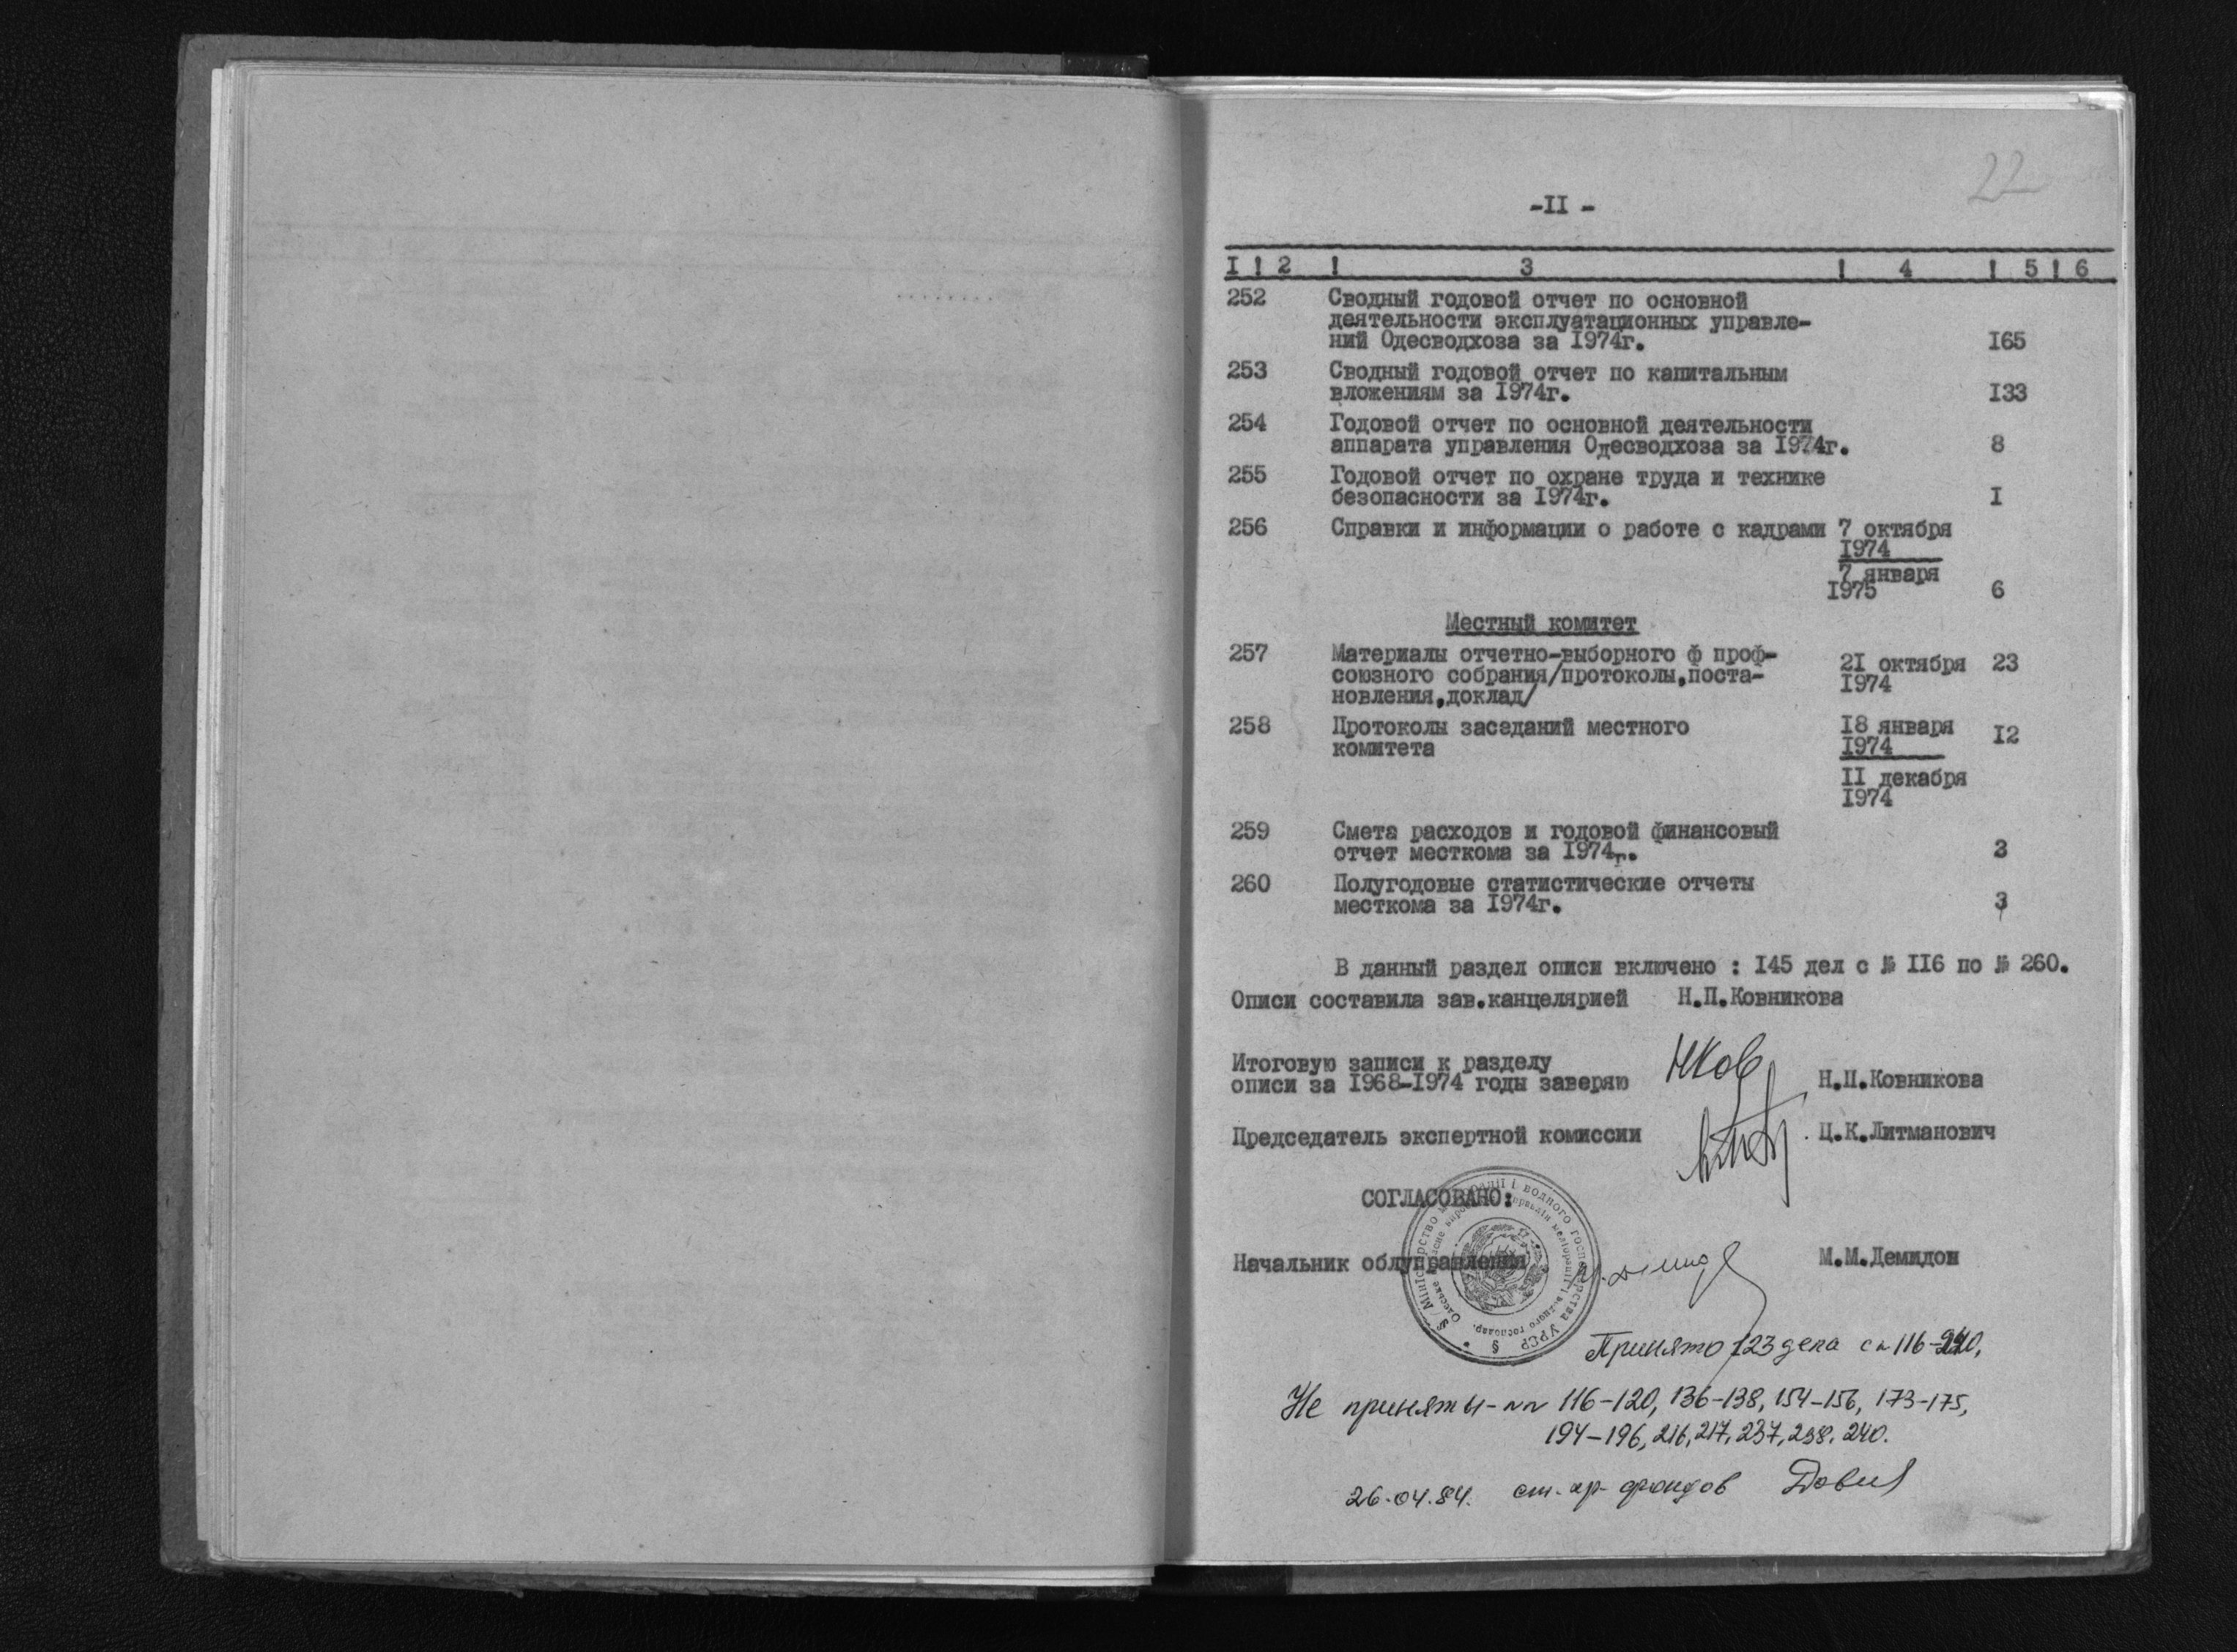 22
-II -
I ! 2 ! 3 ! 4 ! 5 ! 6
252 Сводный годовой отчет по основной
деятельности эксплуатационных управле-
ний Одесводхоза за I974г. I65
253 Сводный годовой отчет по капитальным
вложениям за I974г. I33
254 Годовой отчет по основной деятельности
аппарата управления Одесводхоза за I974г. 8
255 Годовой отчет по охране труда и технике
безопасности за I974г. I
256 Справки и информации о работе с кадрами 7 октября
I974
7 января
I975 6
Местный комитет
257 Материалы отчетно-выборного ф проф-
союзного собрания/протоколы,поста- 21 октября 23
новления,доклад/ I974
258 Протоколы заседаний местного I8 января
комитета I974 I2
II декабря
I974
259 Смета расходов и годовой финансовый
отчет месткома за I974г. 3
260 Полугодовые статистические отчеты
месткома за I974г. 3
В данный раздел описи включено : I45 дел с № II6 по № 260.
Описи составила зав.канцелярией Н.П.Ковникова
Итоговую записи к разделу
описи за I968-I974 годы заверяю НКов Н.П.Ковникова
Председатель экспертной комиссии Ц.К.Литманович
СОГЛАСОВАНО:
Начальник облуправления М.М.Демидов
Міністерство меліорації і водного господарства УРСР
Одеське обласне виробниче управлін меліорації і водного господар.
Принято 123 дела с № 116-240,
Не приняты-№№ 116-120, 136-138, 154-156, 173-175,
194-196, 216, 217, 237, 238, 240.
26.04.84. ст. хр. фондов